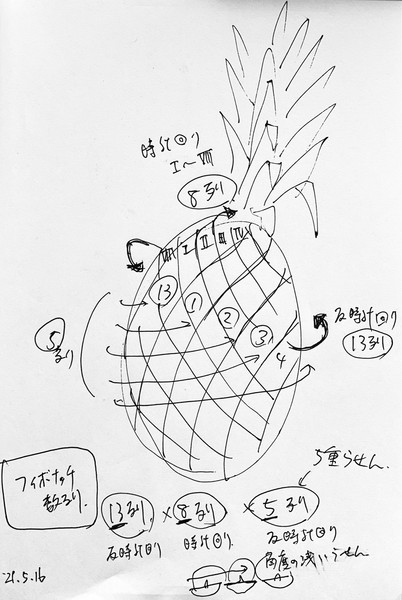 時計回り
I〜VIII
8列
VIII I II III IV
13 1 2 3 4
5列
反時計回り
13列
5重らせん.
フィボナッチ
数列.
13列 × 8列 × 5列
反時計回り 時計回り. 反時計回り
角度の浅いらせん
21.5.16